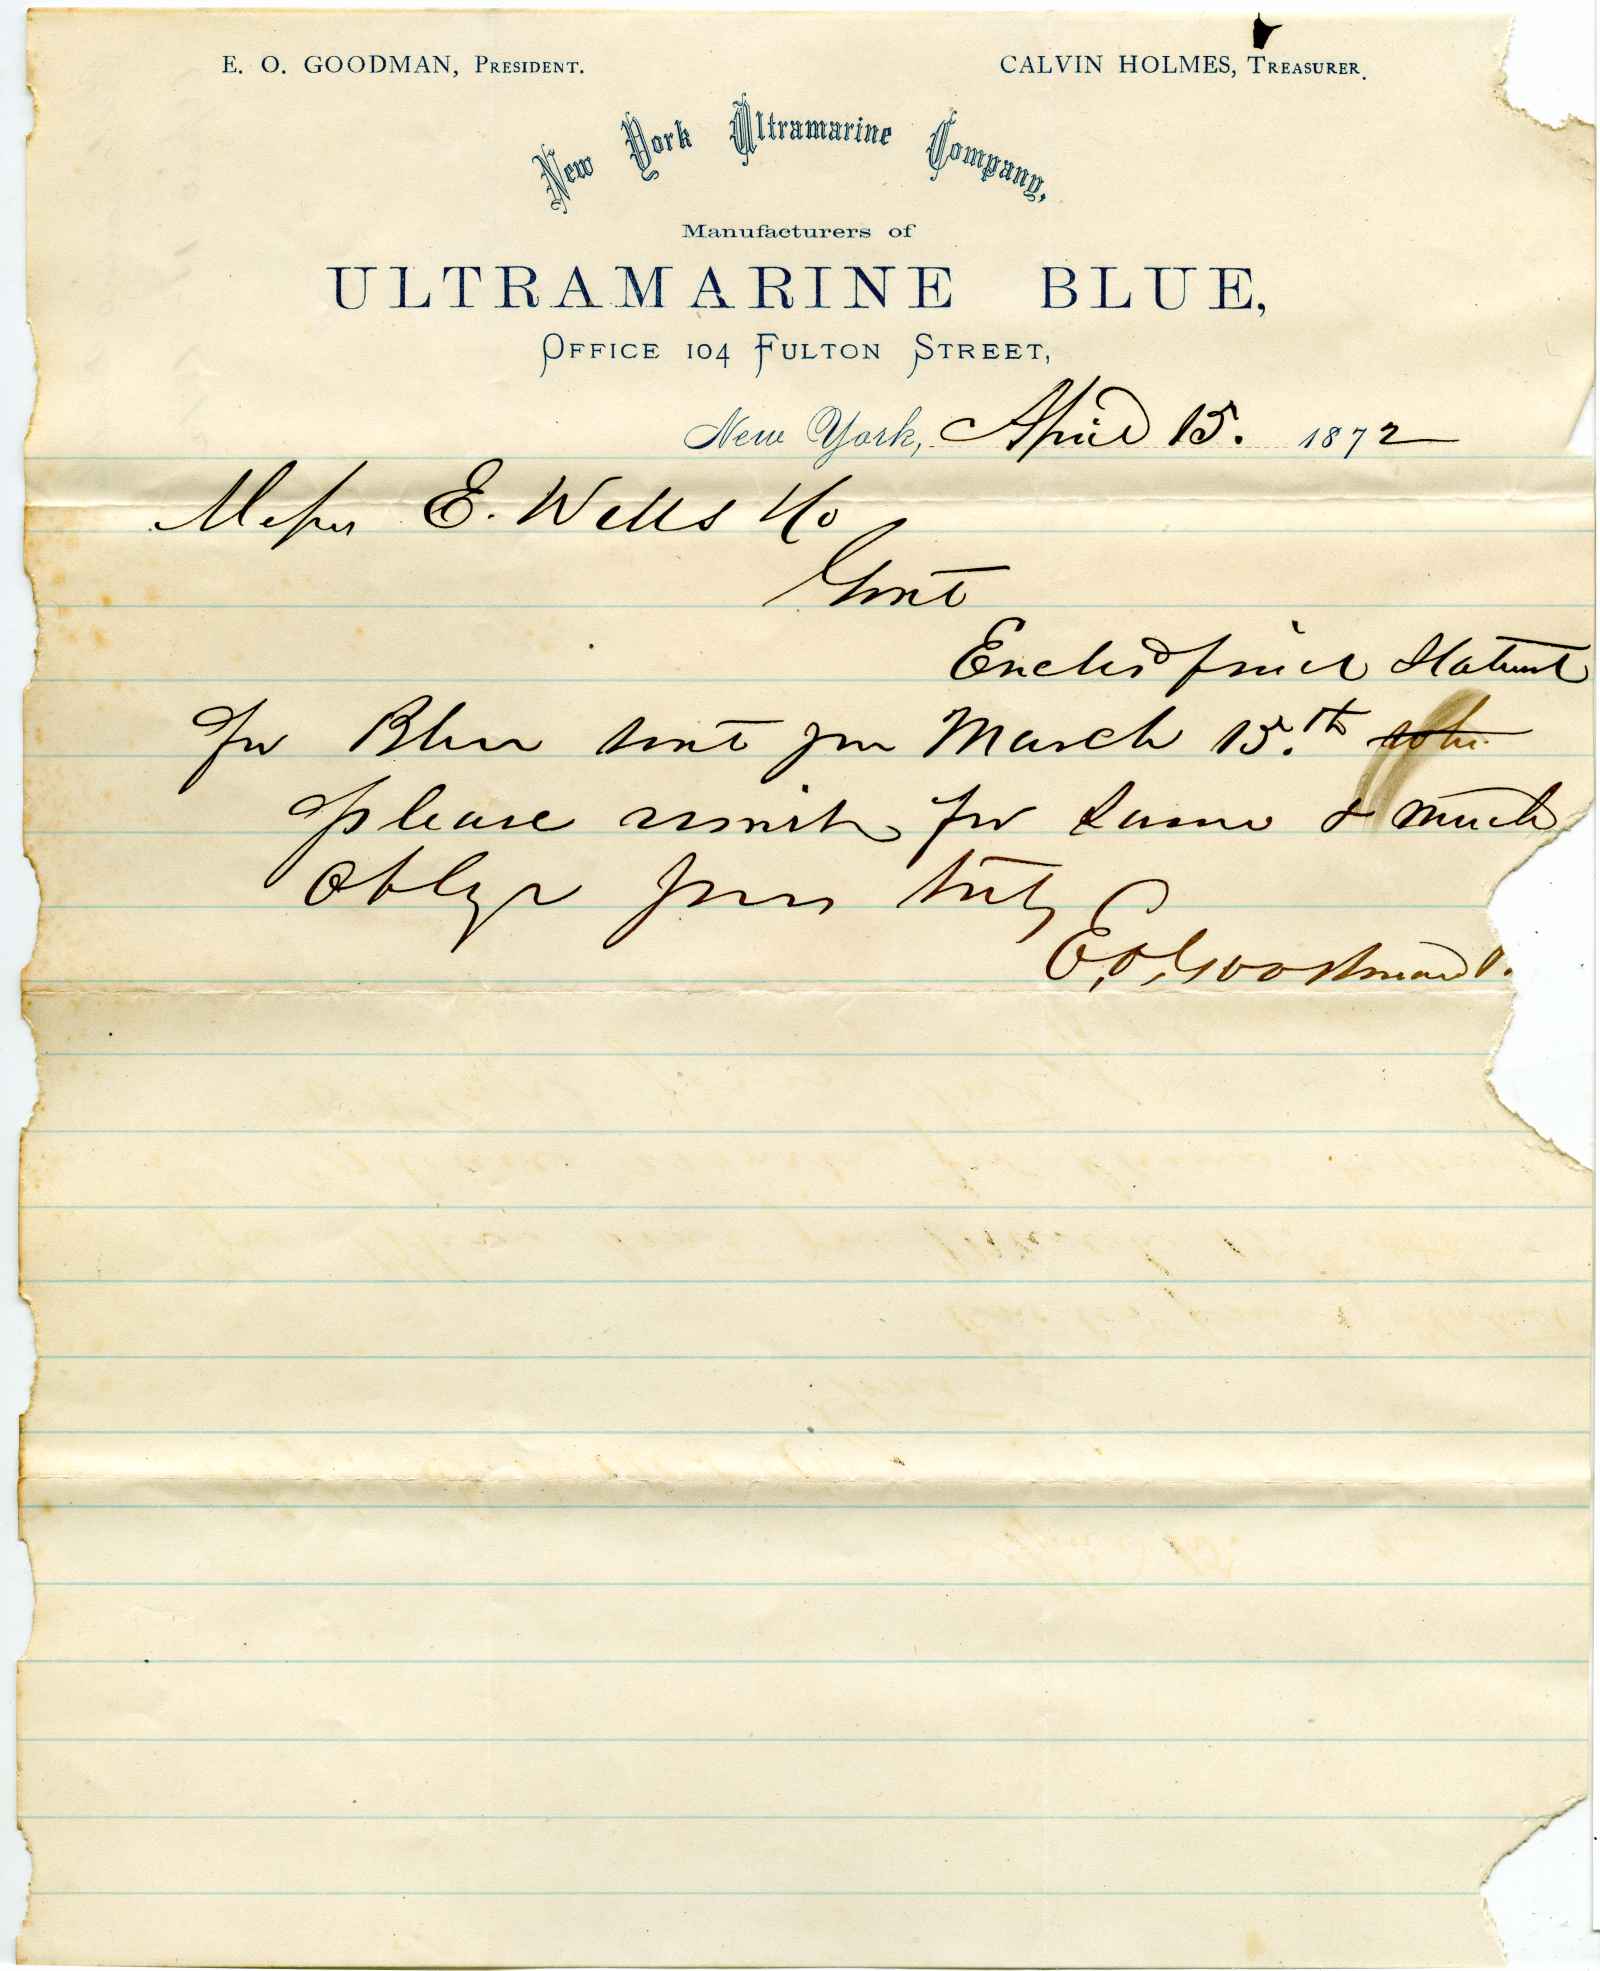 E. O. GOODMAN, PRESIDENT. CALVIN HOLMES, TREASURER.
New York Ultramarine Company,
Manufacturers of
ULTRAMARINE BLUE,
OFFICE 104 FULTON STREET,
New York, April 15. 1872
Messrs E. Wells & Co
Gent
Enclosd find Statemt
for Blue sent you March 15.th
please remit for same & much
oblige yours truly
E. O. Goodman P.